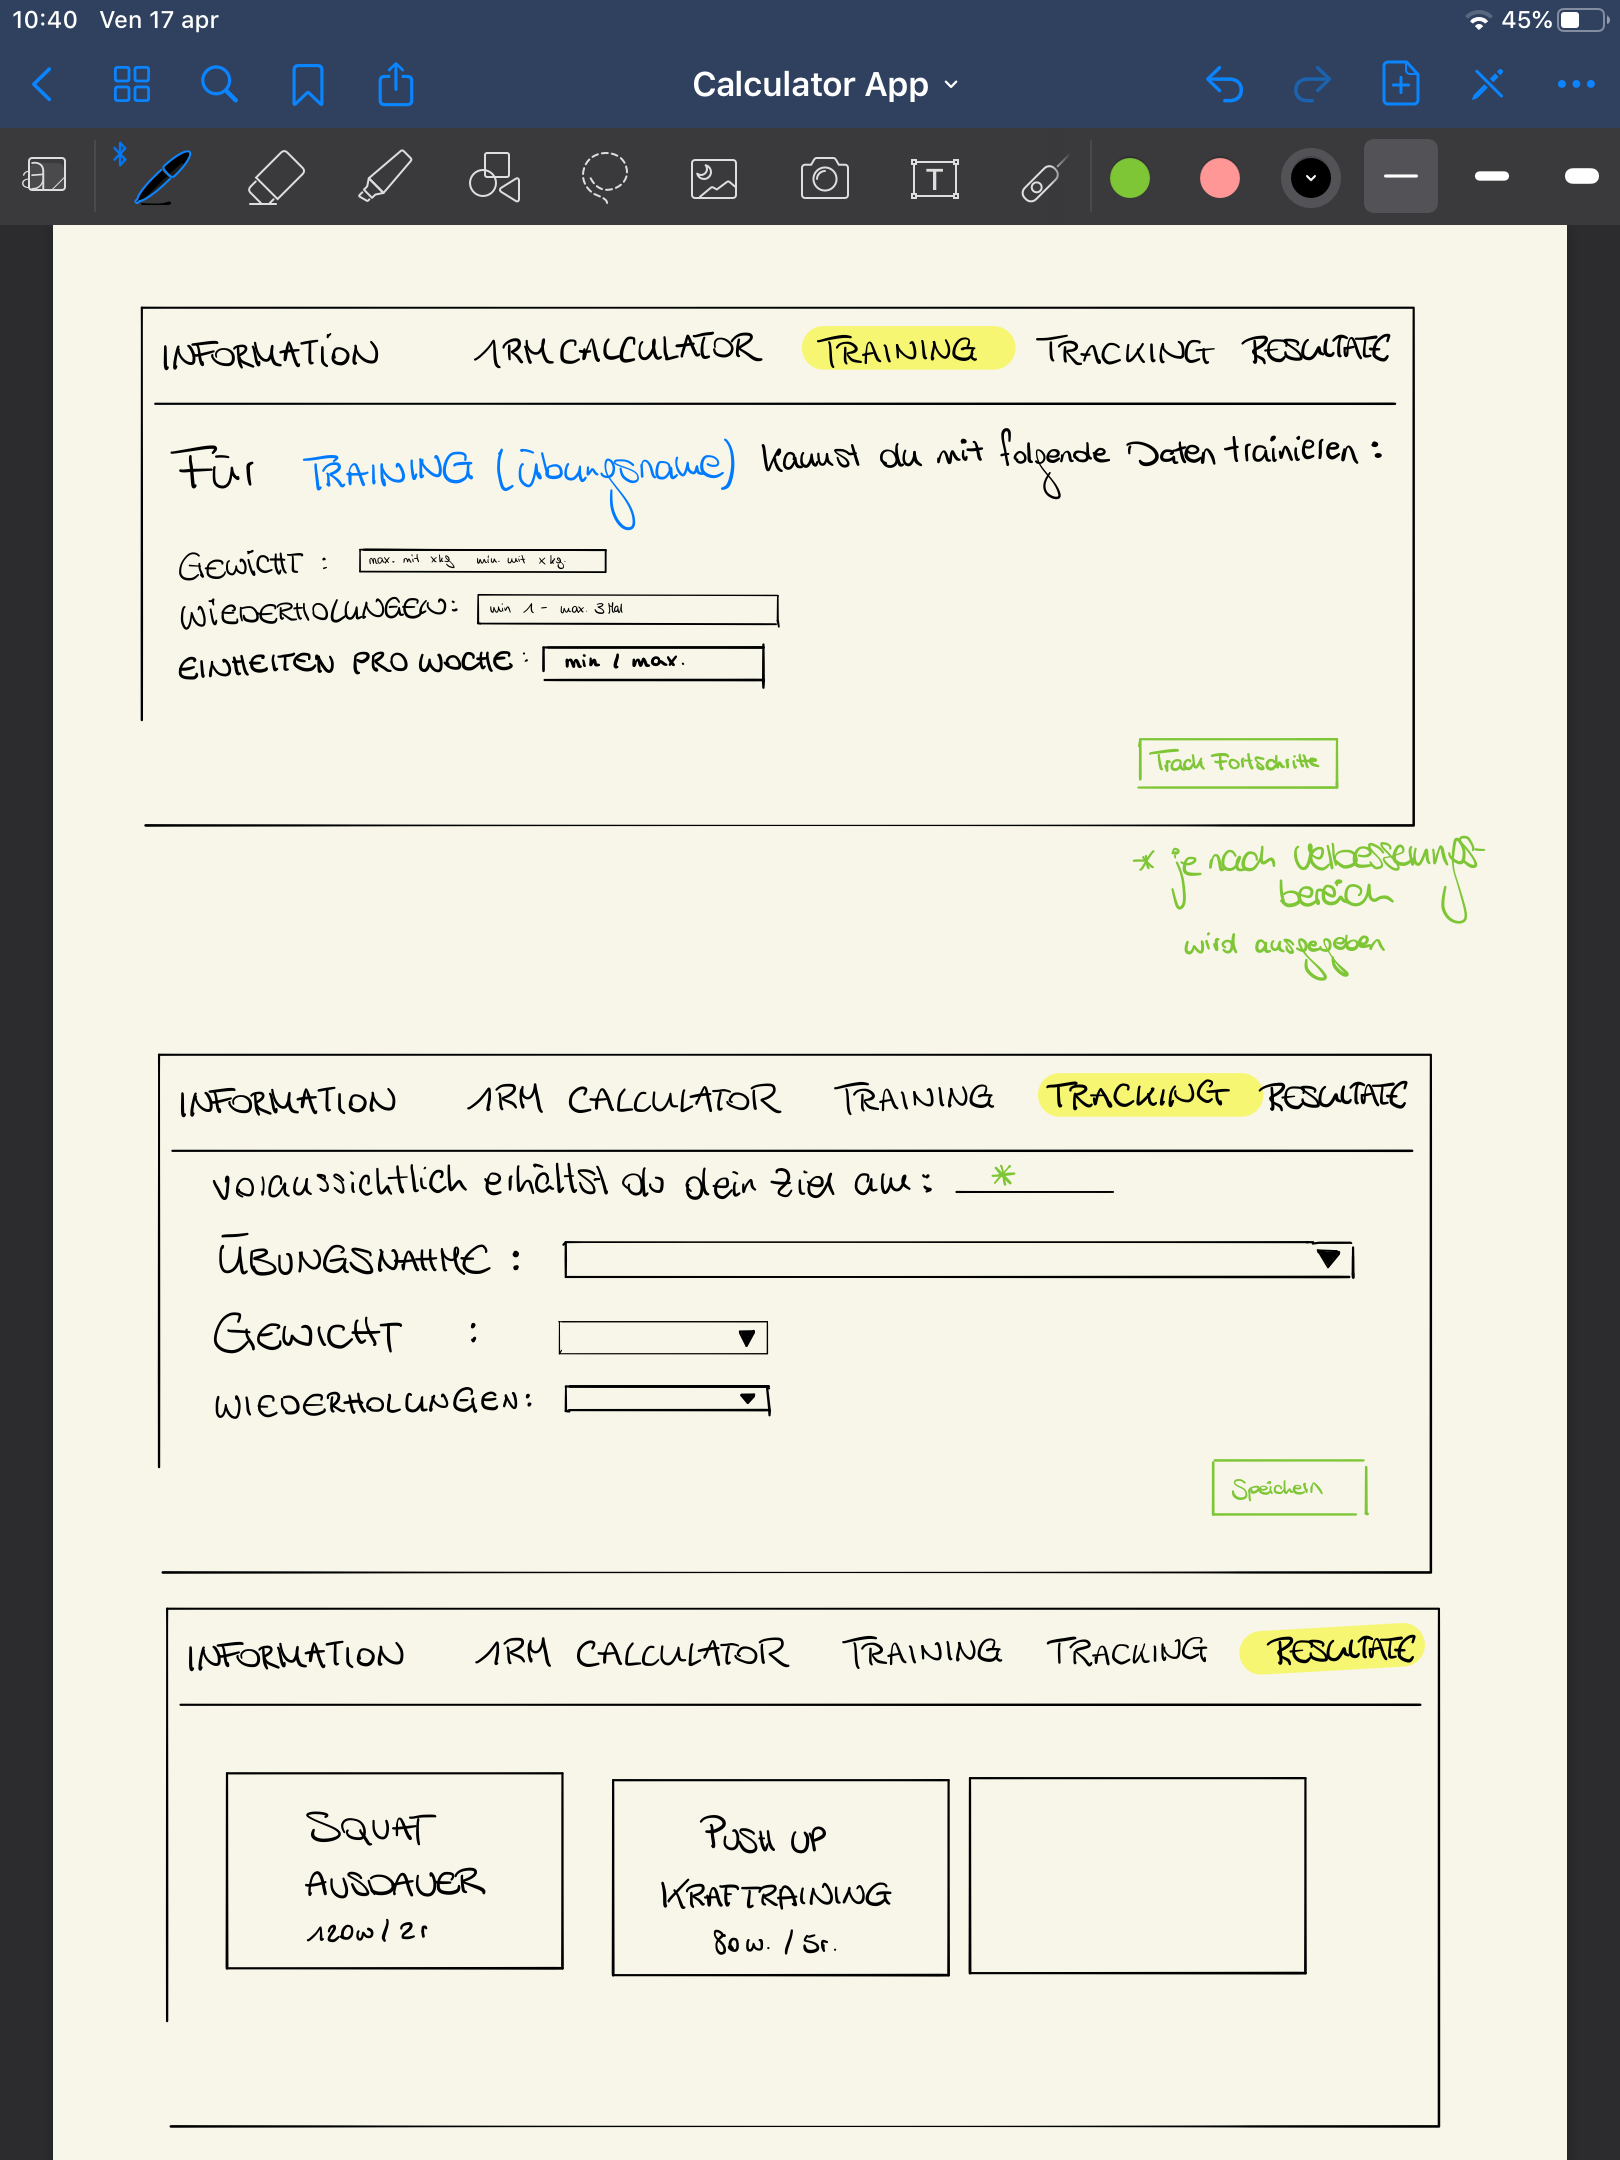 10:40 Ven 17 apr 45%
Calculator App
T
INFORMATION 1RM CALCULATOR TRAINING TRACKING RESULTATE
Für TRAINING (Übungsname) kannst du mit folgende Daten trainieren:
GEWICHT: max. mit x kg min. mit x kg.
WIEDERHOLUNGEN: min 1 - max. 3 Mal
EINHEITEN PRO WOCHE: min / max.
Track Fortschritte
* je nach Verbesserungs-
bereich
wird ausgegeben
INFORMATION 1RM CALCULATOR TRAINING TRACKING RESULTATE
voraussichtlich erhältst du dein Ziel am: *
ÜBUNGSNAHME:
GEWICHT :
WIEDERHOLUNGEN:
Speichern
INFORMATION 1RM CALCULATOR TRAINING TRACKING RESULTATE
SQUAT
AUSDAUER
120w / 2r
PUSH UP
KRAFTRAINING
80w. / 5r.